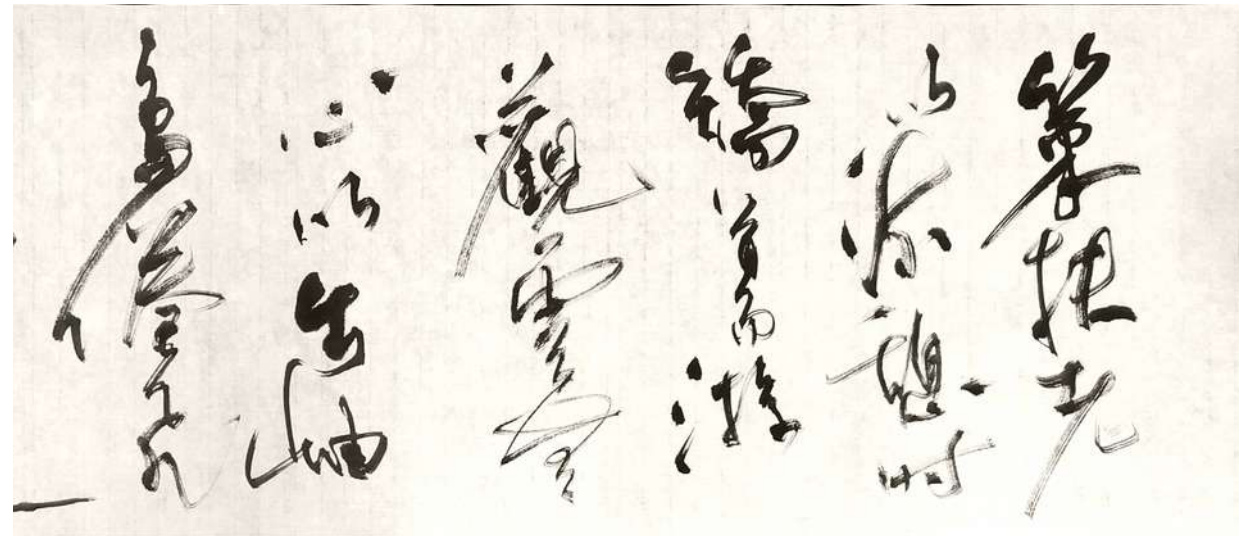 策扶老
以流憩時
矯首而游
觀雲無
心以出岫
鳥倦飛